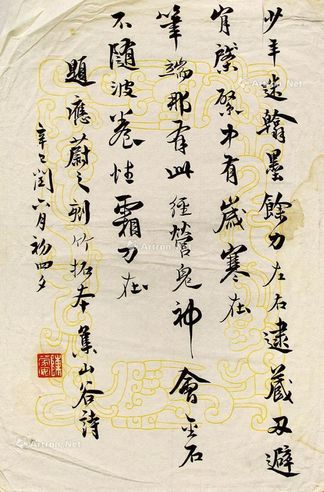 少年迷翰墨餘力左右逮藏刃避
肯綮緊中有歲寒在
筆端那有此經營鬼神會金石
不隨波卷怯霜刀在
題應蔚之刻竹拓本集山谷詩
辛巳閏六月初四夕